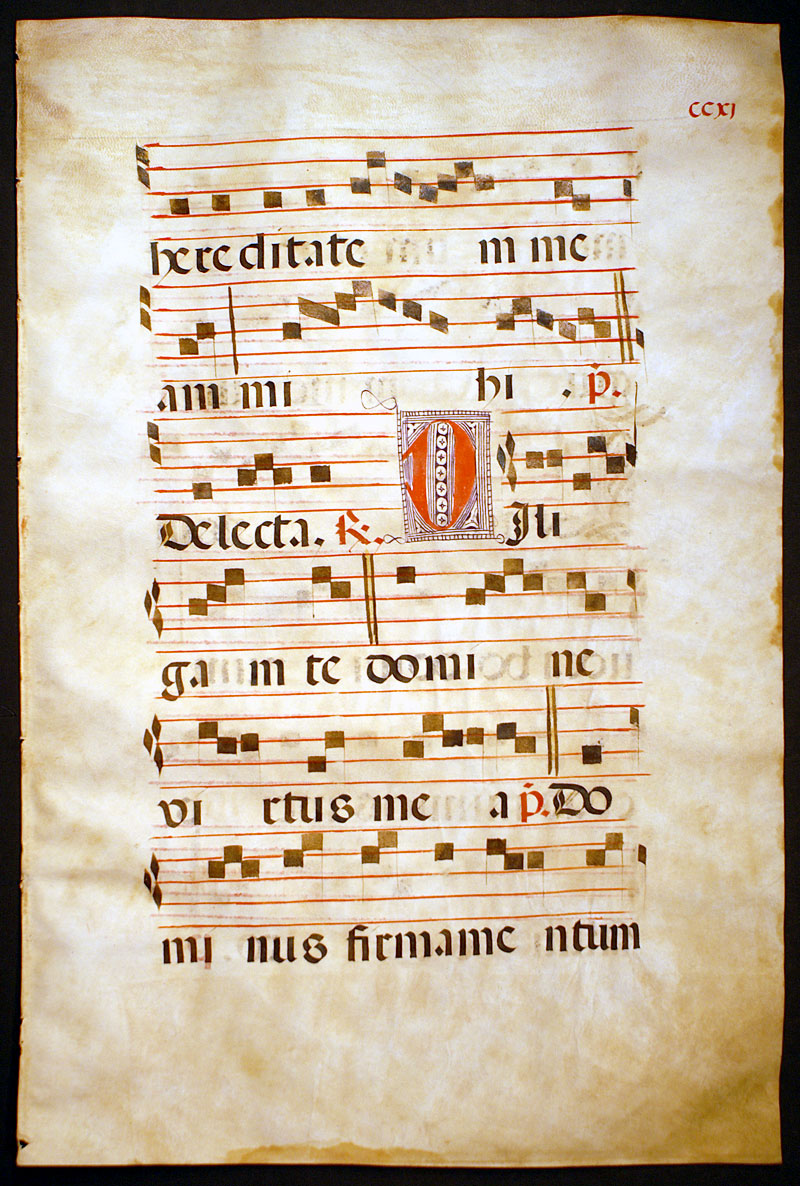 CCXI
hereditate m me
am mi hi . p̃.
Delecta. R. D Ili
gam te domi ne
vi rtus me a p̃. Do
mi nus firmame ntum